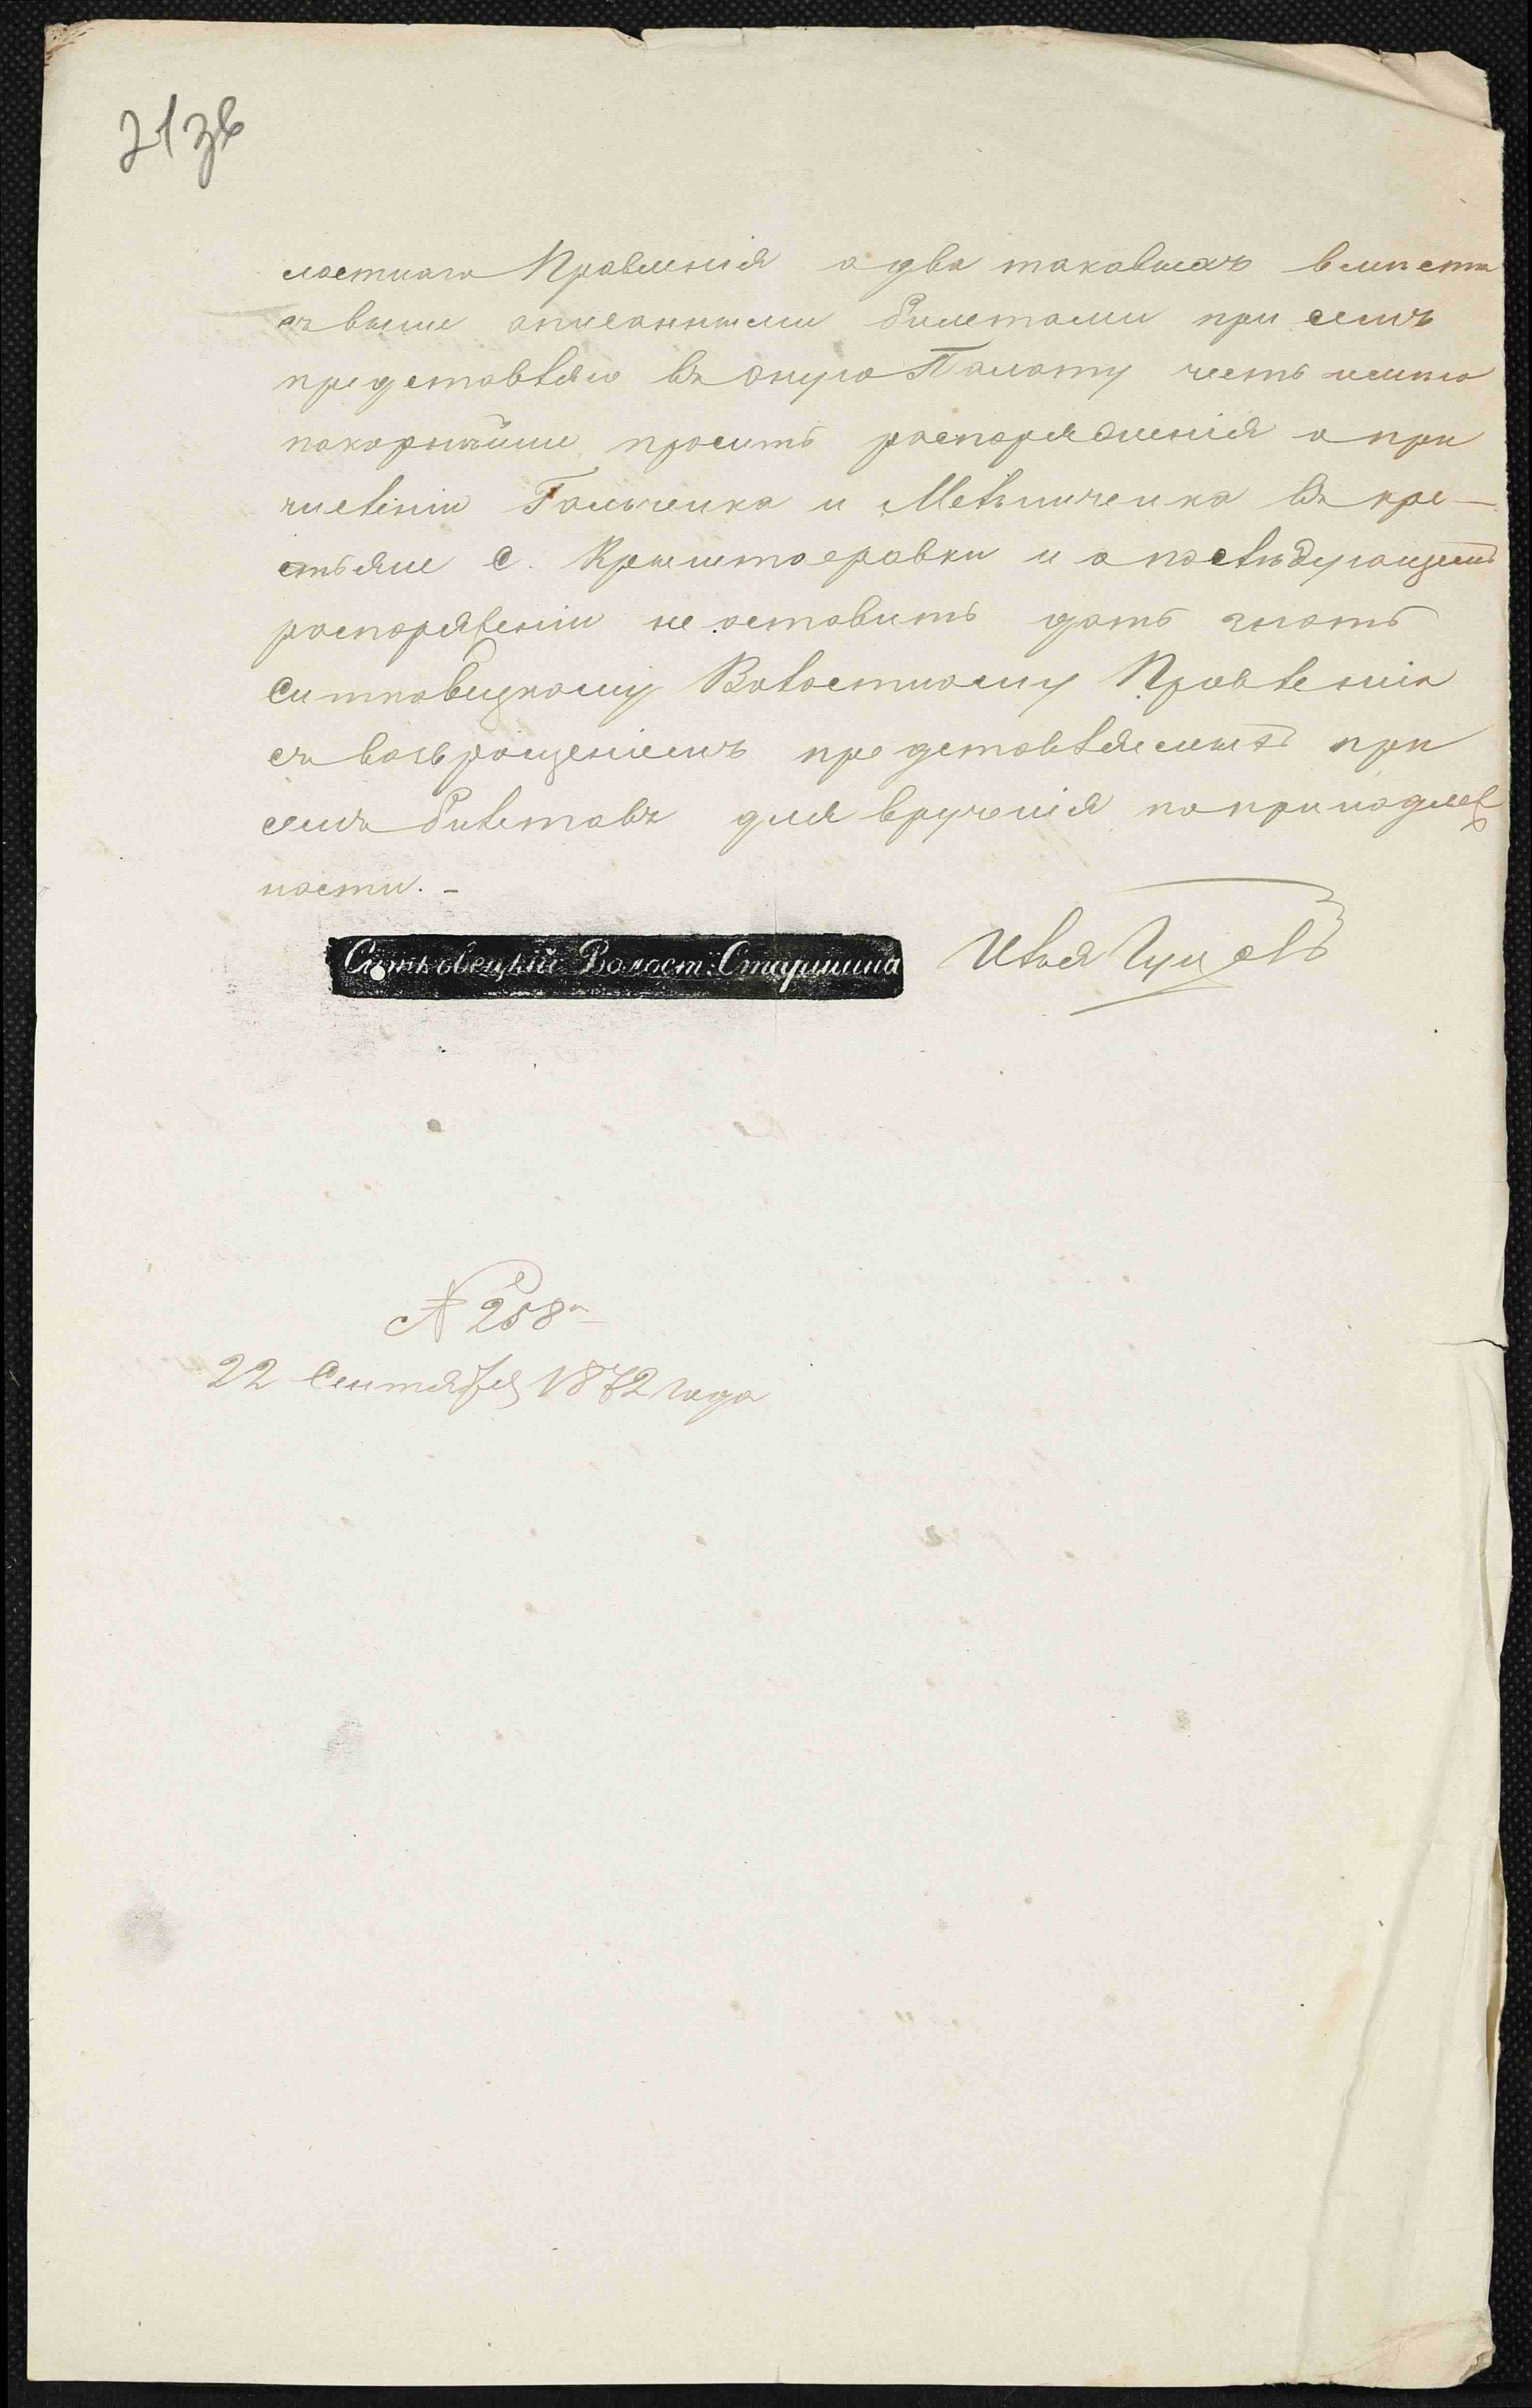 21 зв
лостнаго Правленія а два таковыхъ вмпсти
съ выше описанными билетами при семъ
представляю въ оную Палату честь имѣю
покорнѣйше просить распоряженія о при
численіи Гальченка и Мельниченка въ кре-
стьяне с. Криштоеровки и о послѣдующемъ
распоряженіи не оставить дать знать
Ситковецкому Волостному Правленію
съ возвращеніемъ представляемыхъ при
семъ билетовъ для врученія по принадлеж
ности. -
Ситковецкій Волост: Старшина Илья
№ 258
22 Сентября 1872 года